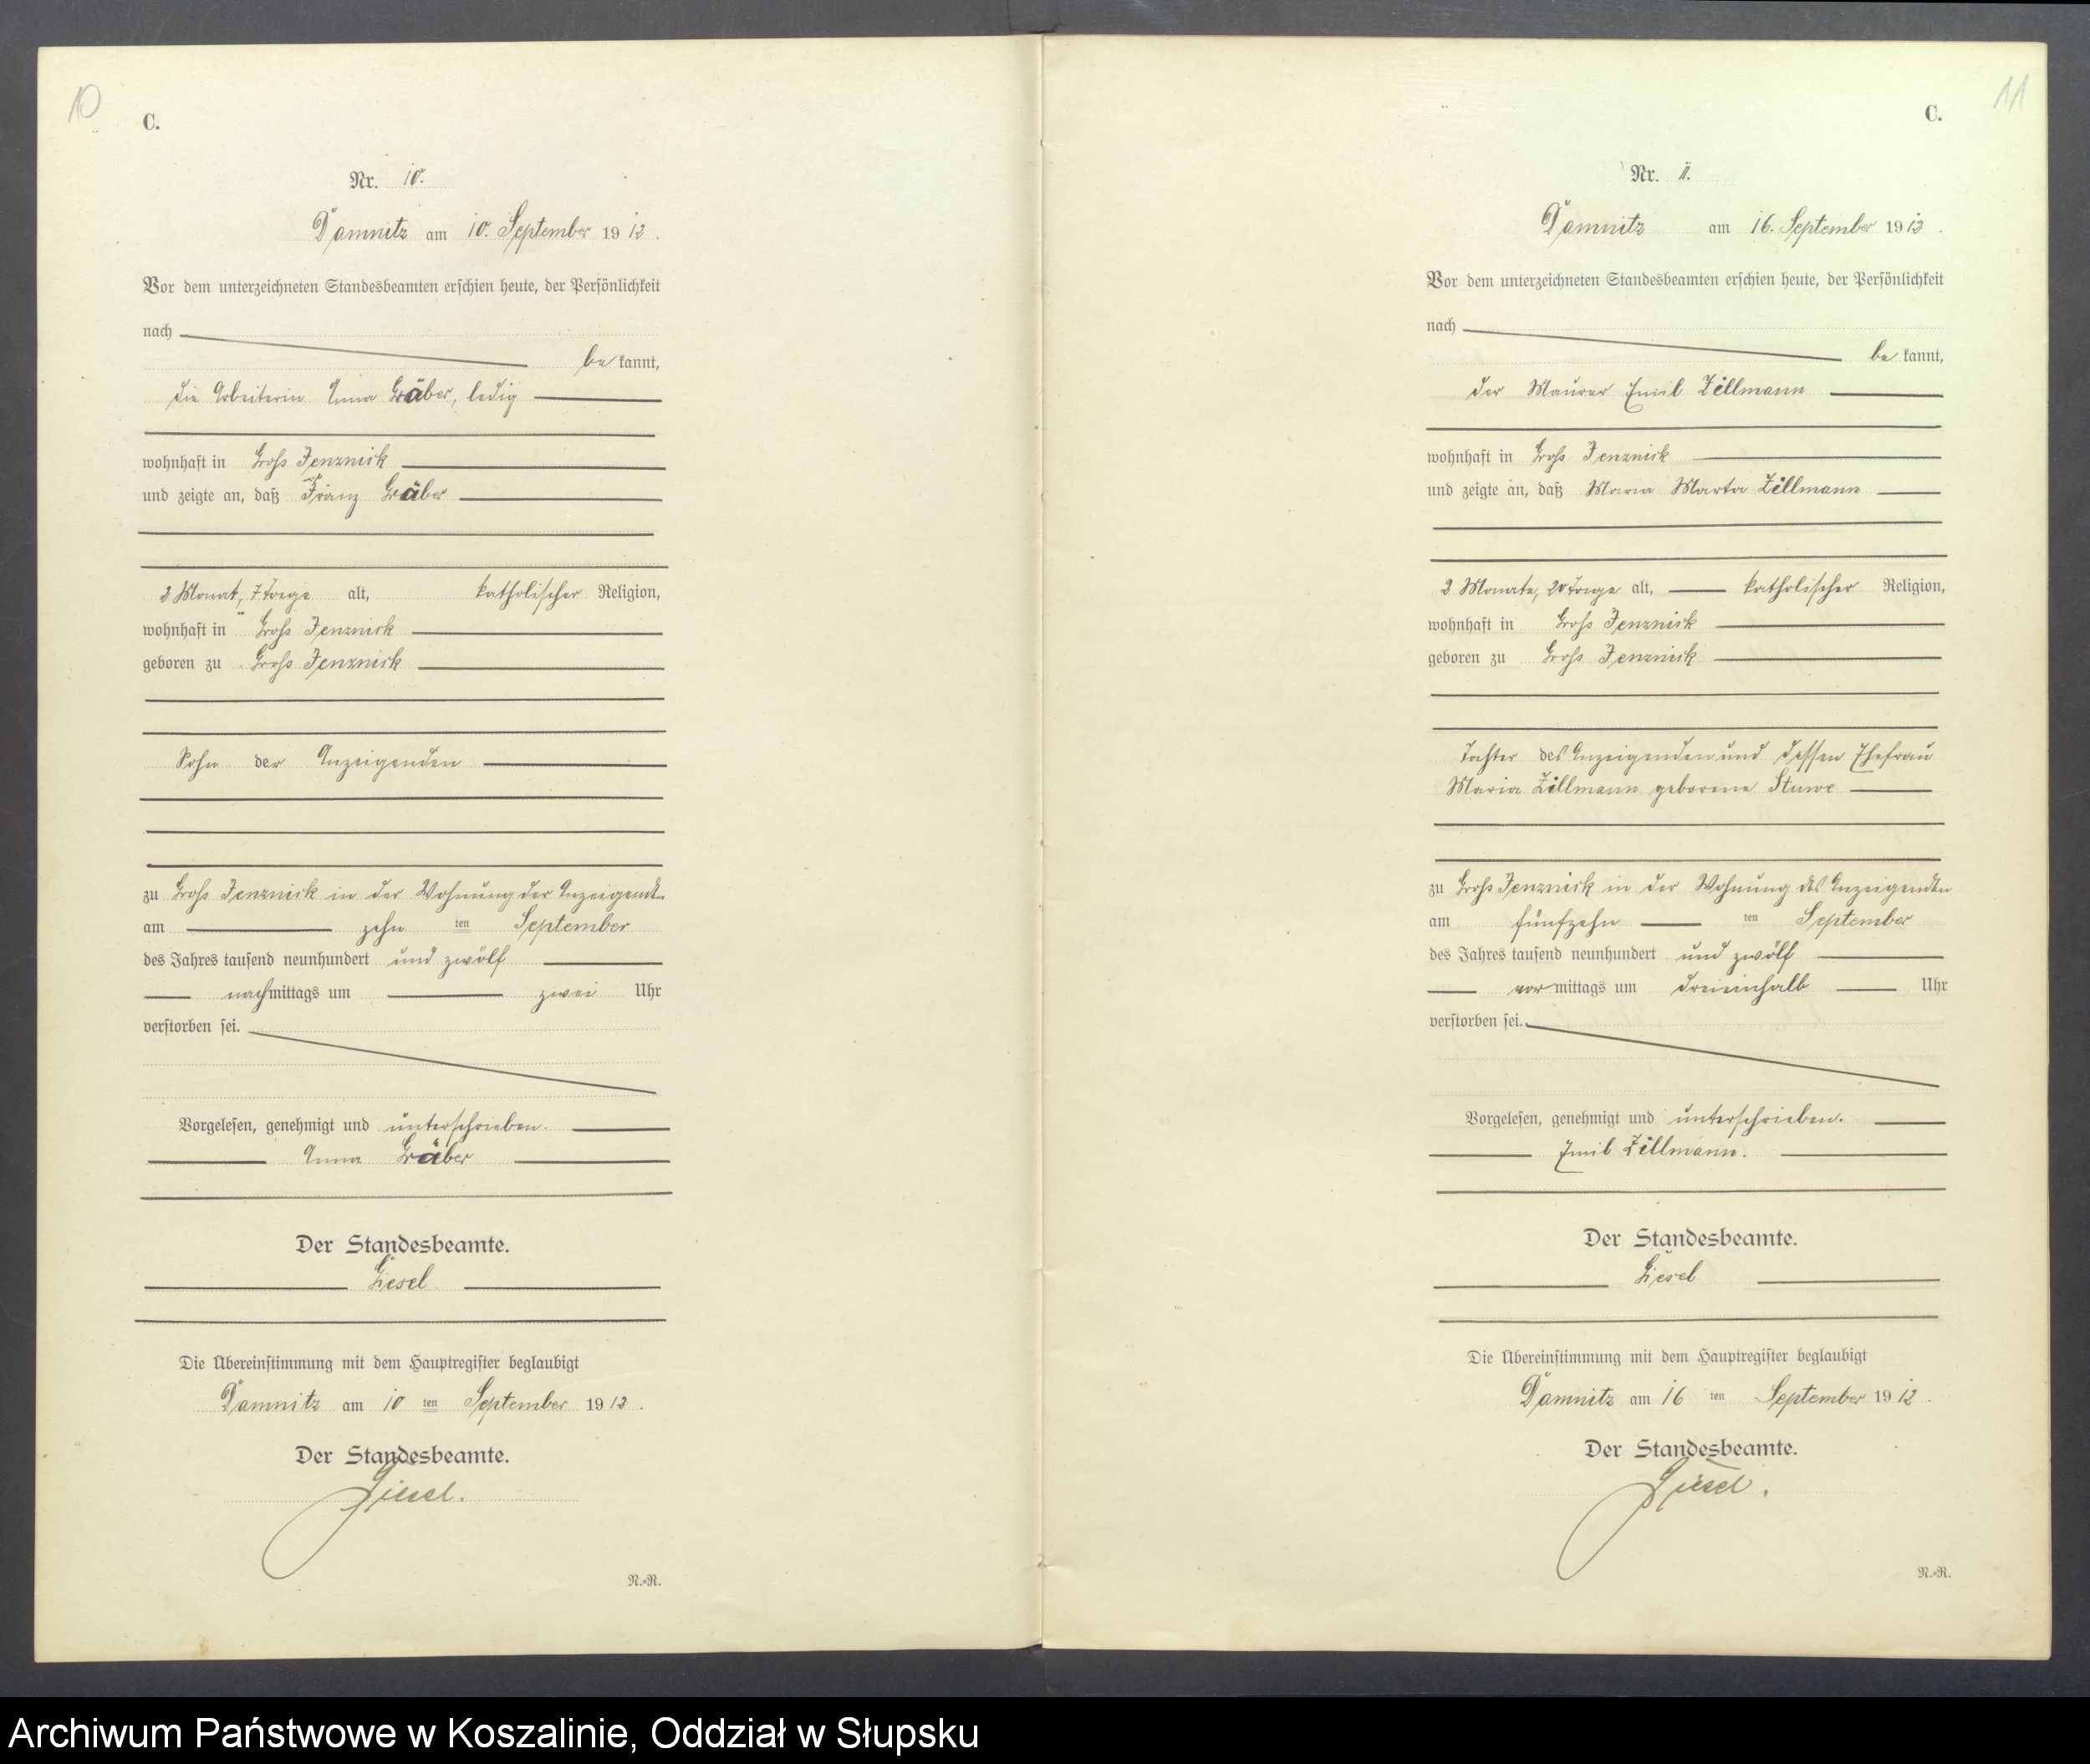 10
C.
Nr. 10.
Damnitz am 10. September 1912.
Vor dem unterzeichneten Standesbeamten erschien heute, der Persönlichkeit
nach
be kannt,
die Arbeiterin Anna Gräber, ledig
wohnhaft in Groß Jenznick
und zeigte an, daß Franz Gräber
2 Monat, 7 Tage alt, katholischer Religion,
wohnhaft in Groß Jenznick
geboren zu Groß Jenznick
Sohn der Anzeigenden
zu Groß Jenznick in der Wohnung der Anzeigenden
am zehn ten September
des Jahres tausend neunhundert und zwölf
nachmittags um zwei Uhr
verstorben sei.
Vorgelesen, genehmigt und unterschrieben.
Anna Gräber
Der Standesbeamte.
Giesel
Die Übereinstimmung mit dem Hauptregister beglaubigt
Damnitz am 10 ten September 1912.
Der Standesbeamte.
Giesel.
N.-R.
11
C.
Nr. 11.
Damnitz am 16. September 1912.
Vor dem unterzeichneten Standesbeamten erschien heute, der Persönlichkeit
nach
be kannt,
der Maurer Emil Zillmann
wohnhaft in Groß Jenznick
und zeigte an, daß Maria Marta Zillmann
2 Monate, 20 Tage alt, katholischer Religion,
wohnhaft in Groß Jenznick
geboren zu Groß Jenznick
Tochter des Anzeigenden und dessen Ehefrau
Maria Zillmann geborene Stuwe
zu Groß Jenznick in der Wohnung des Anzeigenden
am fünfzehn ten September
des Jahres tausend neunhundert und zwölf
vormittags um dreieinhalb Uhr
verstorben sei.
Vorgelesen, genehmigt und unterschrieben.
Emil Zillmann.
Der Standesbeamte.
Giesel
Die Übereinstimmung mit dem Hauptregister beglaubigt
Damnitz am 16 ten September 1912.
Der Standesbeamte.
Giesel.
N.-R.
Archiwum Państwowe w Koszalinie, Oddział w Słupsku